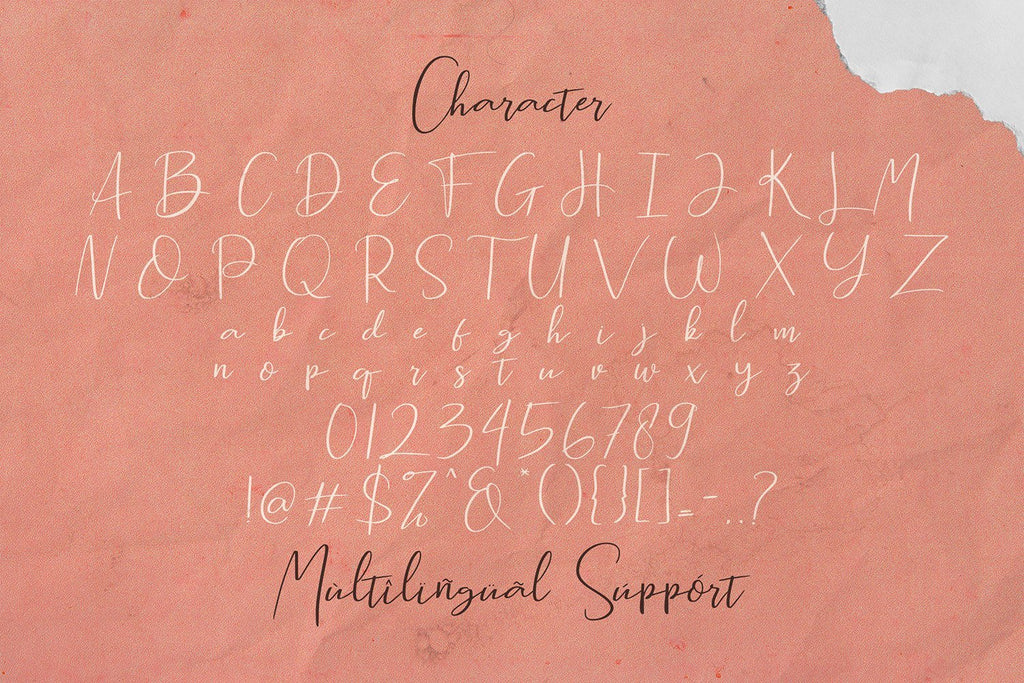 Character
A B C D E F G H I J K L M
N O P Q R S T U V W X Y Z
a b c d e f g h i j k l m
n o p q r s t u v w x y z
0123456789
!@#$%^&*(){}[]=-_..?
Mùltîlïñgüãl Súppórt